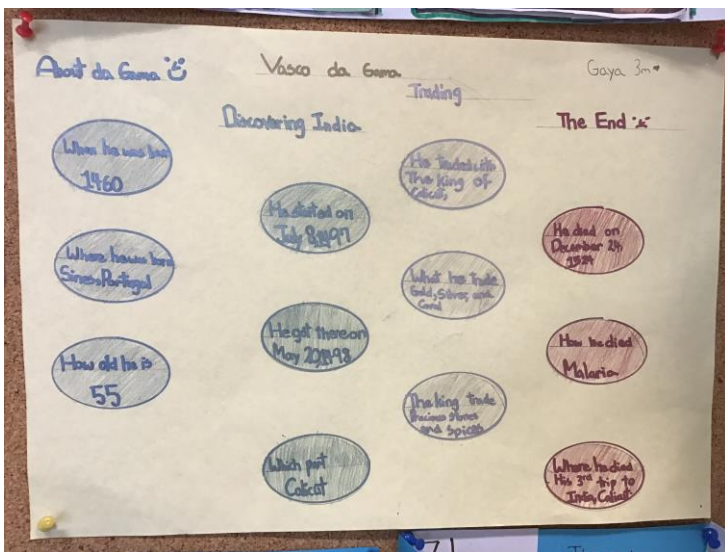 About da Gama
Vasco da Gama
Gaya 3m
Trading
Discovering India
The End
When he was born
1460
Where he was born
Sines, Portugal
How old he is
55
He started on
July 8, 1497
He got there on
May 20, 1498
Which port
Calicut
He traded with
The king of
Calicut,
What he trade
Gold, Silver, and
Coral
The king trade
Precious stones
and Spices
He died on
December 24,
1524
How he died
Malaria
Where he died
His 3rd trip to
India, Calicut
71